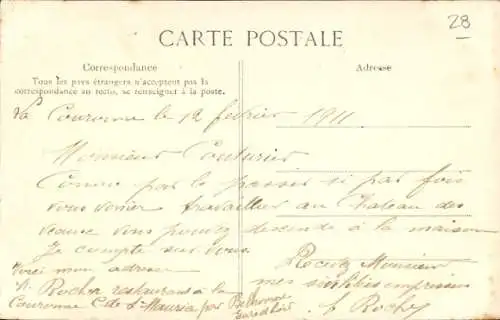 28
CARTE POSTALE
Correspondance
Adresse
Tous les pays étrangers n'acceptent pas la
correspondance au recto, se renseigner à la poste.
La Couronne le 12 février 1911
Monsieur Couturier
Comme par le passer si par fois
vous venier travaillier au Chateau des
vous pouvez descende à la maison
Je compte sur vous
Voici mon adresse
Rocher restaurant à la
Couronne C de St Maurice par
Recevez Monsieur
mes
Rocher